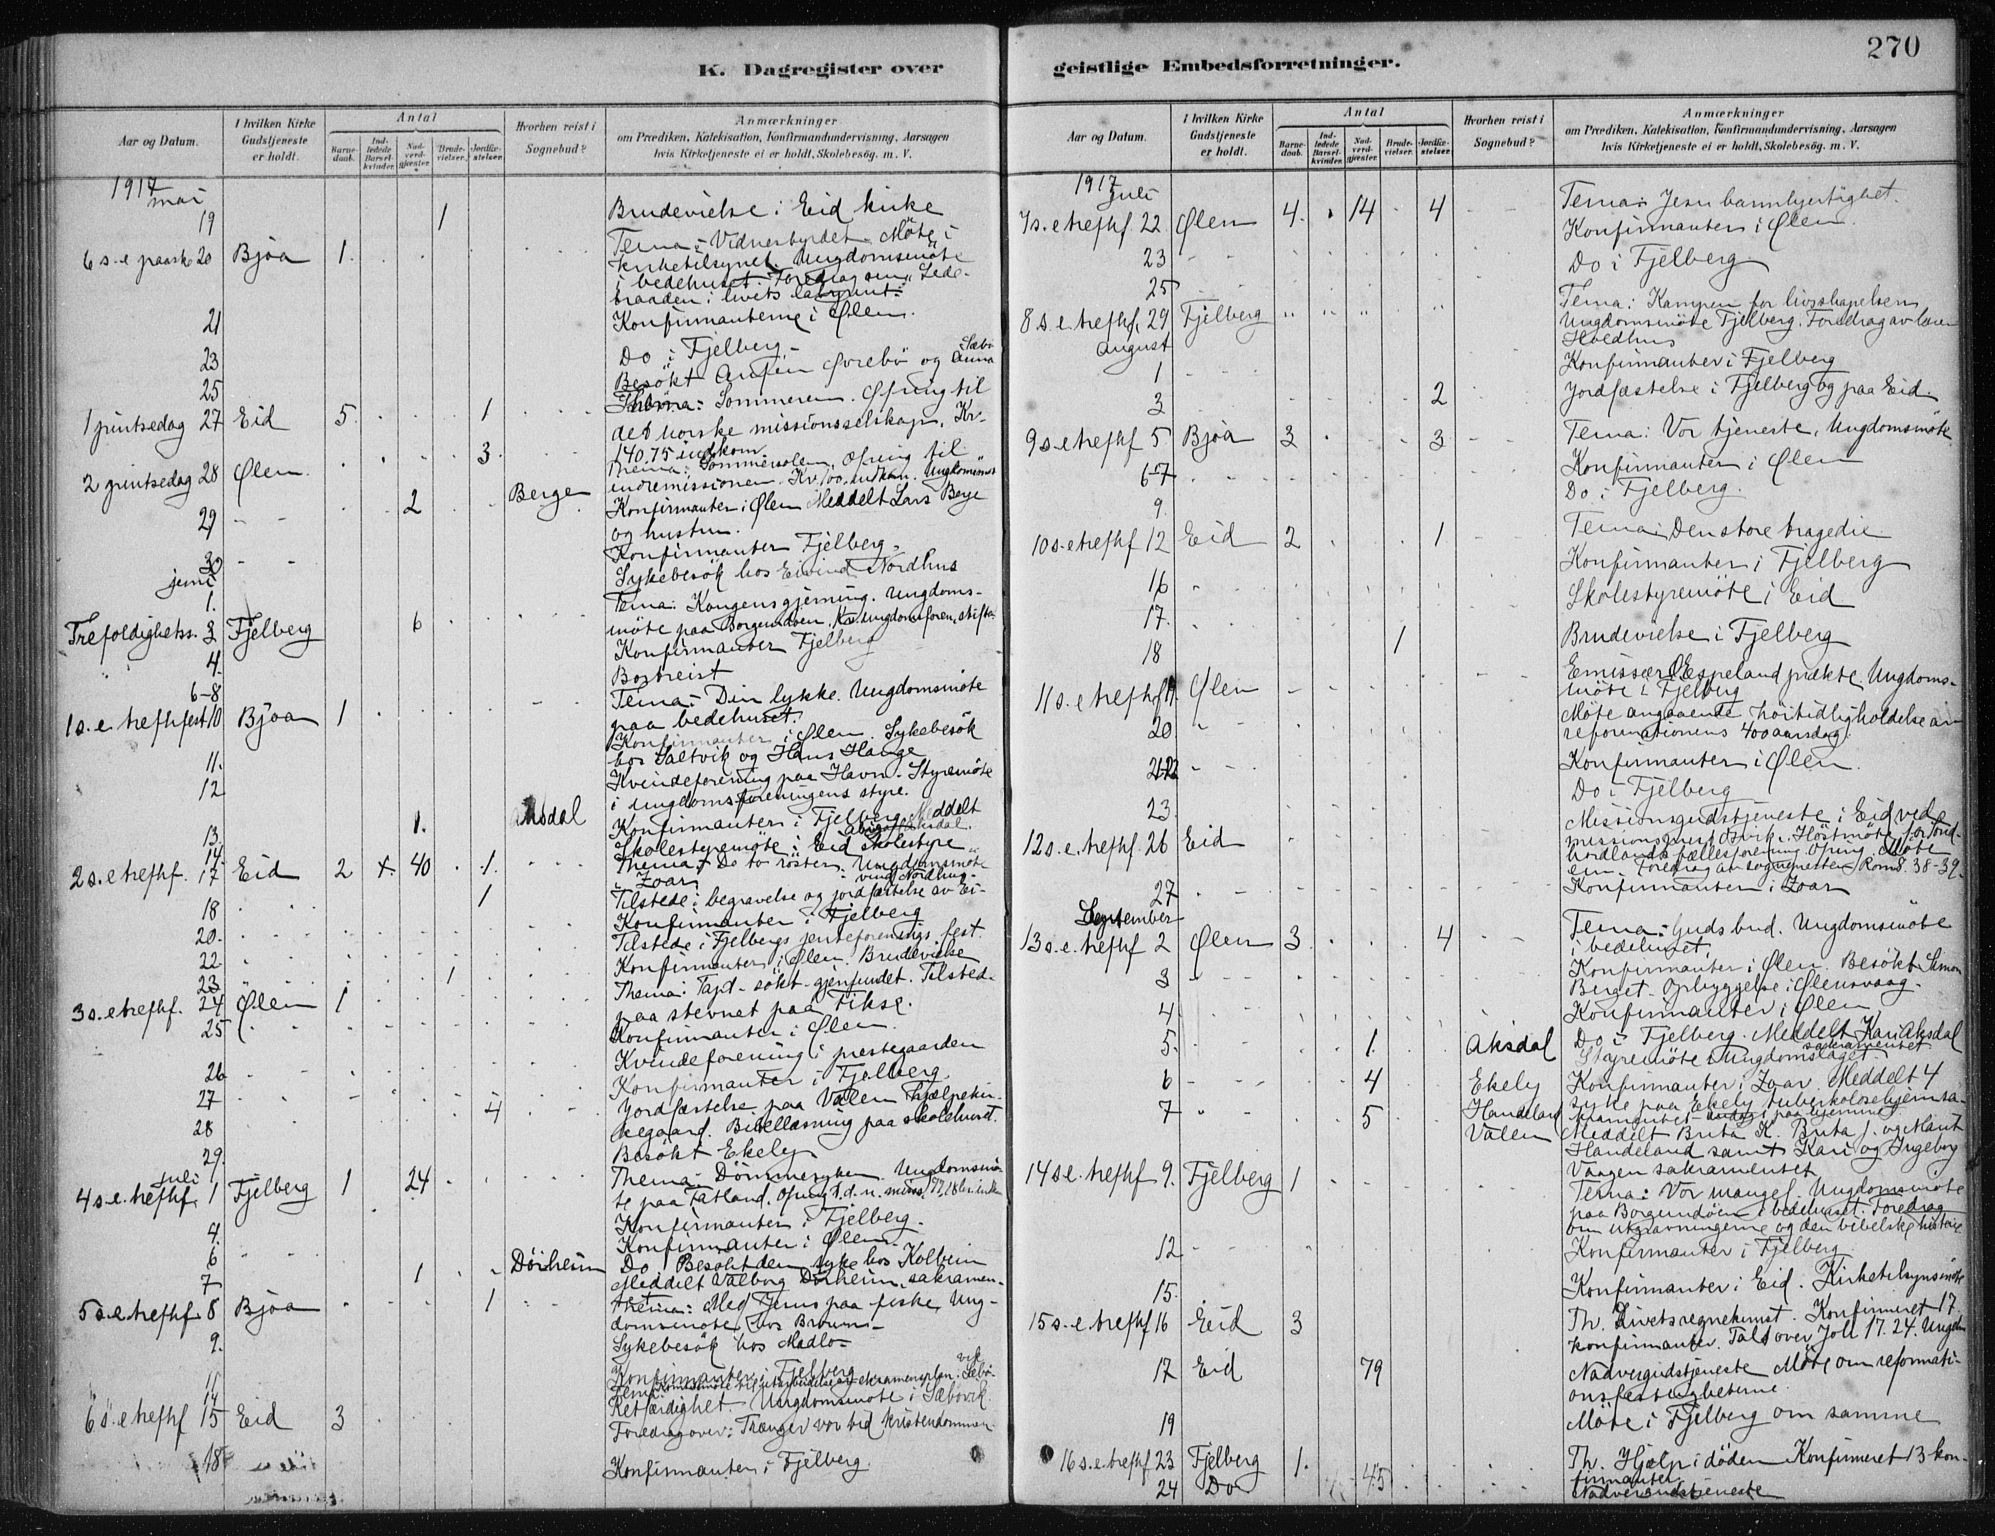 270
K. Dagregister over geistlige Embedsforretninger.
Aar og Datum. | I hvilken Kirke Gudstjeneste er holdt. | Antal | Barnedaab. | Indledede Barselkvinder. | Nadverdgjester. | Brudevielser. | Jordfæstelser. | Hvorhen reist i Sognebud? | Anmærkninger om Prædiken, Katekisation, Konfirmandundervisning, Aarsagen hvis Kirketjeneste ei er holdt, Skolebesøg. m. V.
1917
mai
19 1 Brudevielse i Eid kirke
6 s. e paaske 20 Bjoa 1. Tema: Vidnesbyrdet. Møte i
kirketilsynet. Ungdomsmøte
i bedehuset. Foredrag om "Lede-
traaden i livets labyrint".
21 Konfirmanterne i Ølen.
23 Do i Fjelberg
25 Besøkt Øvrebø og Anna
1 pintsedag 27 Eid 5. 1 Thema: Sommeren. Ofring til
det norske missionsselskap. Kr.
140.75 indkom.
2 pintsedag 28 Ølen 3. Thema: Sommersolen. Ofring til
indremissionen. Kr. 100. indkom. Ungdomsmøt
29 2 Berge Konfirmanter i Ølen Meddelt Lars Berge
og hustru.
30 Konfirmanter Fjelberg.
juni
1. Sykebesøk hos Eivind Nordhus
Trefoldighetss. 3 Fjelberg 6 Tema: Kongens gjerning. Ungdoms-
møte paa Borgundøen.
4. Konfirmanter Fjelberg
6-8 Bortreist
1 s. e. trefh.fest 10 Bjoa 1 Tema: Din lykke. Ungdomsmøte
paa bedehuset.
11. Konfirmanter i Ølen. Sykebesøk
hos Saltvik og Hans Hauge
12 Kvindeforening paa Havn. Styremøte
i ungdomsforeningens styre.
13. 1. Aksdal Konfirmanter i Fjelberg Meddelt
Aksdal.
14. Skolestyremøte i Eid skolestyre
2 s. e trefhf. 17 Eid 2 + 40 1. Thema: De to røster. Ungdomsmøte
i Zoar.
18 1 Tilstede i begravelse og jordfæstelse av Ei-
vind Nordhus.
20. Konfirmanter i Fjelberg
22 Tilstede i Fjelbergs jenteforenings fest
23 1 Konfirmanter i Ølen. Brudevielse
3 s. e trefhf. 24 Ølen 1 Thema: Tapt - søkt - gjenfundet. Tilsted-
paa stevnet paa Fikse.
25 Konfirmanter i Ølen.
Kvindeforening i prestegaarden
26 Konfirmanter i Fjelberg.
27 4 Jordfæstelse paa Vaalen Hjælpekir-
28 kegaard. Bibellæsning paa skolehuset.
29 Besøkt Ekely
juli
4 s. e. trefhf. 1 Fjelberg 1 24 Thema: Dømmesyken. Ungdomsmø-
te paa Tatland.
4. Konfirmanter i Fjelberg.
6 Konfirmanter i Ølen.
7 1 Dörheim Do. Besøkt den syke hos Kolbein
Meddelt Valborg Dörheim sakramen-
5 s. e trefhf 8 Bjoa 1 Thema: Med Jesus paa fiske. Ung-
domsmøte hos Bruun-
9. Sykebesøk hos Madla
11 Konfirmanter i Fjelberg
14
6 s. e trefhf 15 Eid 3 Tema: Retfærdighet. Ungdomsmøte i Sæbøvik.
Foredrag over: Trænger vor tid kristendommen
18 Konfirmanter i Fjelberg.
1917
Juli
7 s. e trefhf. 22 Ølen 4. 14 4 Tema: Jesu barmhjertighet.
Konfirmanter i Ølen.
23
25 Do i Fjelberg
8 s. e. trefhf. 29 Fjelberg Tema: Kampen for livsskapelsen
Ungdomsmøte Fjelberg. Foredrag av lærer
august
1 Konfirmanter i Fjelberg
3 2 Jordfæstelse i Fjelberg og paa Eid.
9 s. e trefhf 5 Bjoa 3 3 Tema: Vor tjeneste, Ungdomsmøte
6-7 Konfirmanter i Ølen
9. Do i Fjelberg.
10 s. e trefhf 12 Eid 2 1 Tema: Den store tragedie
16 Konfirmanter i Fjelberg
17. Skolestyremøte i Eid
18 1 Brudevielse i Fjelberg
11 s. e trefhf 19. Ølen Emissær Espeland prækte. Ungdoms-
møte i Fjelberg
20 Møte angaaende høitidligholdelse av
reformationens 400 aarsdag.
Konfirmanter i Ølen.
23 Do i Fjelberg
12 s. e. trefhf. 26 Eid Missionsgudstjeneste i Eid ved
missionsprest Høstmøte for Sønd-
hordlands fællesforening Ofring. Møte
em. Foredrag av sognepresten Rom 8. 38-39.
27 Konfirmanter i Zoar
September
13 s. e. trefhf 2 Ølen 3. 4 Tema: Guds bud. Ungdomsmøte
i bedehuset.
3 Konfirmanter i Ølen. Besøkt Simon
Berget. Opbyggelse i Ølensvaag.
4 Konfirmanter i Ølen
5. 1. Aksdal Do i Fjelberg. Meddelt Kari Aksdal
sakramentet
Styremøte i Ungdomslaget
6 4 Ekely Konfirmanter i Zoar. Meddelt 4
syke paa Ekely tuberkolosehjem sa-
7 5 Handeland kramentet
Valen Meddelt Brita K. Brita J. og Marit
Handeland samt Kari og Ingeborg
Vaagen sakramentet
14 s. e. trefhf 9. Fjelberg 1 Tema: Vor mangel. Ungdomsmøte
paa Borgundøen i bedehuset. Foredrag
om utgravningerne og den bibelske historie
12 Konfirmanter i Fjelberg
15. Konfirmanter i Eid. Kirketilsynsmøte
15 s. e. trefhf 16 Eid 3 Th. Livets regnekunst. Konfirmeret 17
konfirmanter. Tale over Joh 17. 24. Ungdo
17 Eid 79 Nadvergudstjeneste Møte om reformati-
onsfestligheterne.
19 Møte i Fjelberg om samme
16 s. e. trefhf 23 Fjelberg 1. Th. Hjælp i døden Konfirmeret 13 kon-
firmanter
24 Do 45 Nadvergudstjeneste